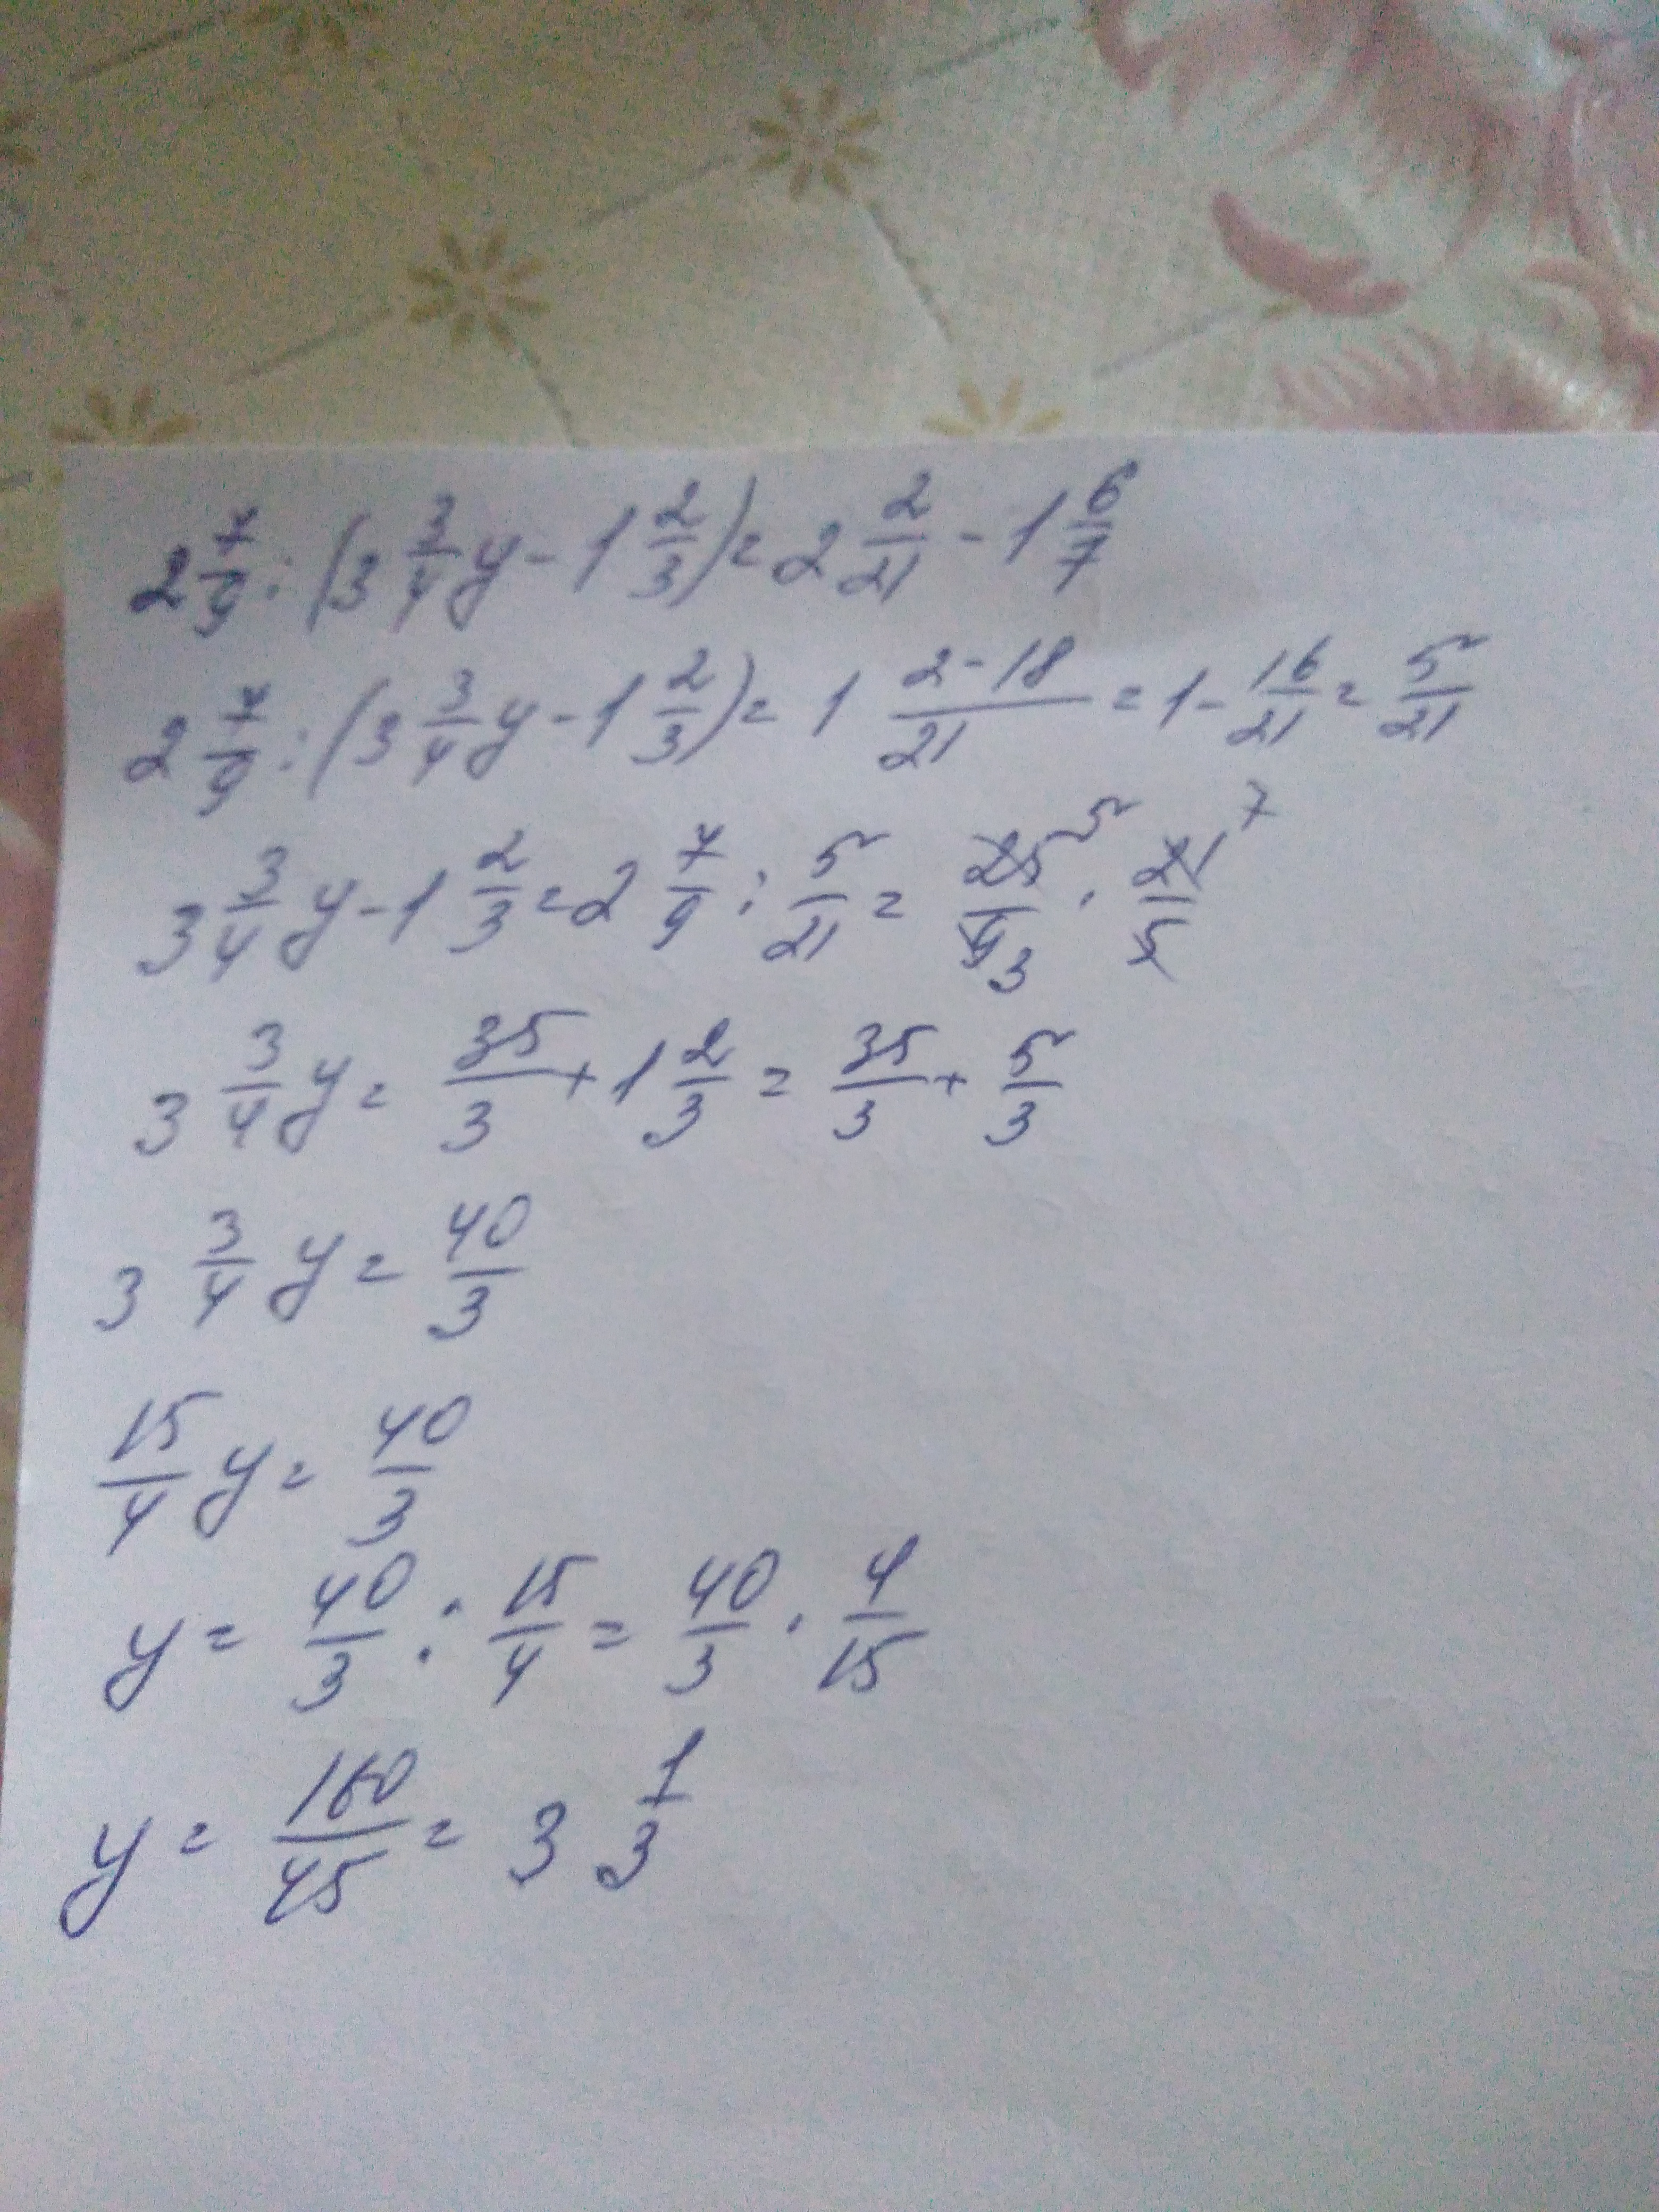 2 7/9 : (3 3/4 y - 1 2/3) = 2 2/21 - 1 6/7
2 7/9 : (3 3/4 y - 1 2/3) = 1 (2-18)/21 = 1 - 16/21 = 5/21
3 3/4 y - 1 2/3 = 2 7/9 : 5/21 = 25 5/9 3 · 21 7/5
3 3/4 y = 35/3 + 1 2/3 = 35/3 + 5/3
3 3/4 y = 40/3
15/4 y = 40/3
y = 40/3 : 15/4 = 40/3 · 4/15
y = 160/45 = 3 1/3